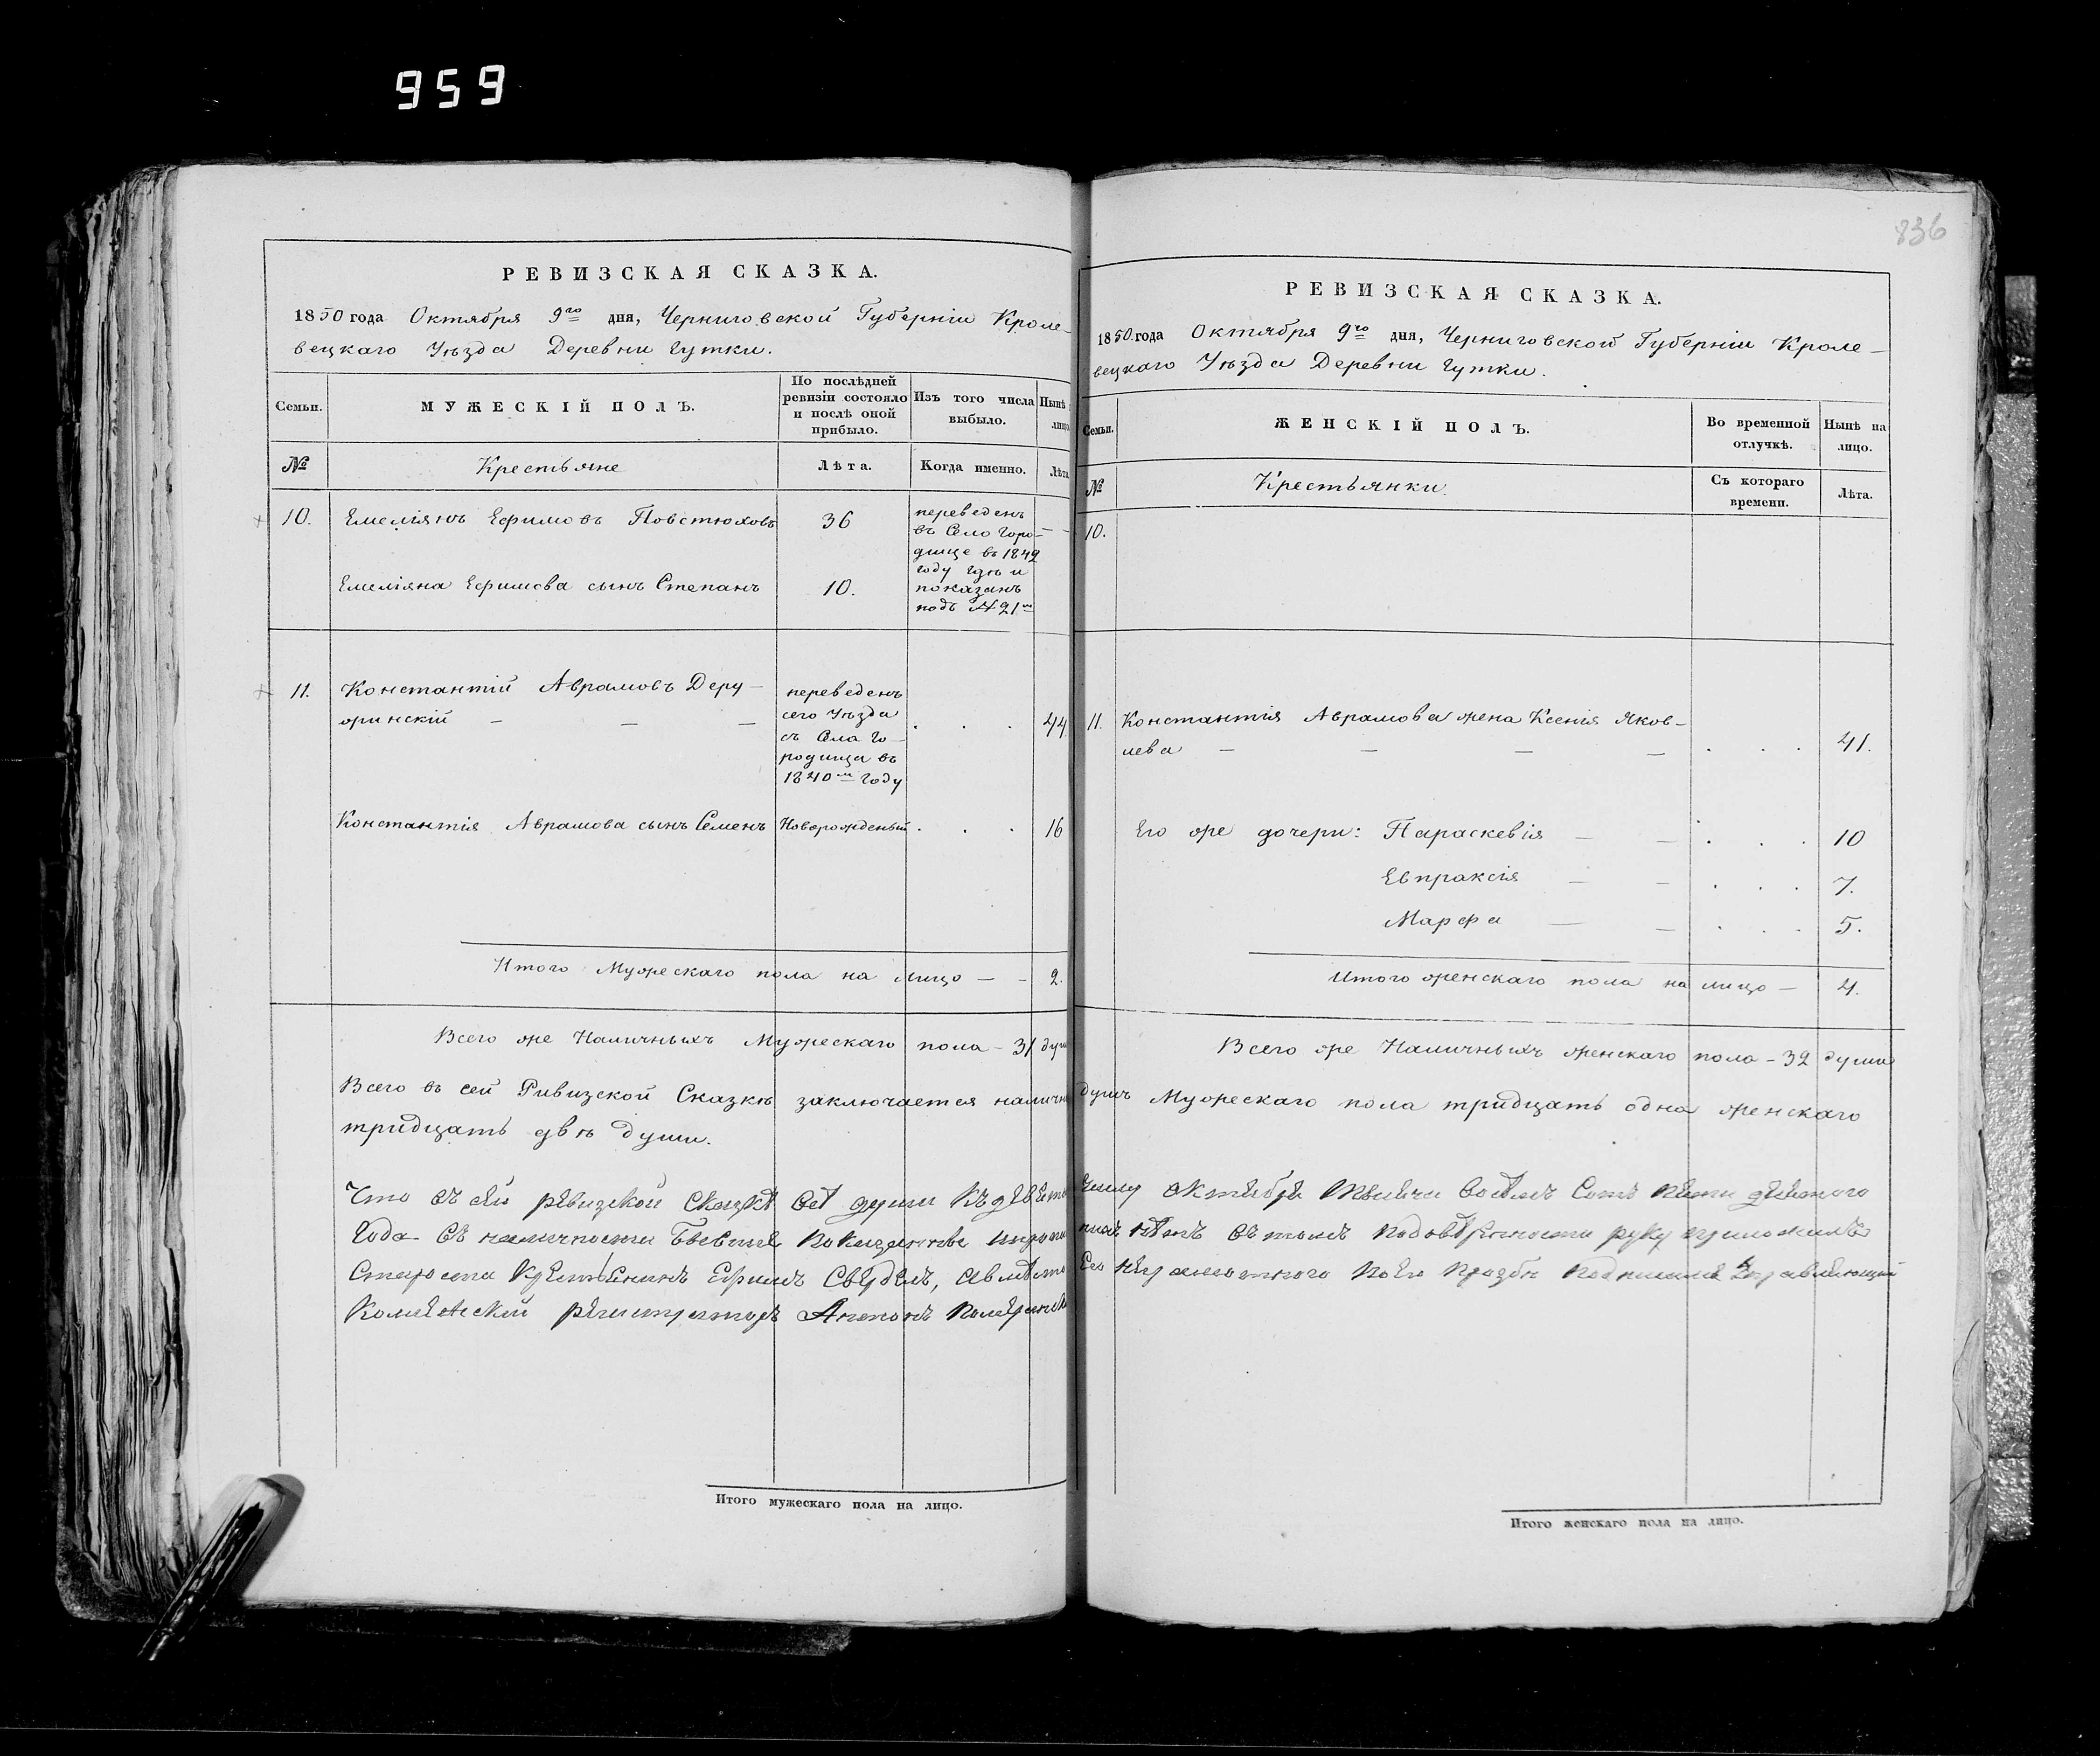 959
836
РЕВИЗСКАЯ СКАЗКА.
1850 года Октября 9го дня, Черниговской Губерніи Кроле-
вецкаго Уѣзда Деревни Гутки.
Семьи.
МУЖЕСКІЙ ПОЛЪ.
По послѣдней
ревизіи состояло
и послѣ оной
прибыло.
Изъ того числа
выбыло.
Нынѣ
лицо
№
Крестьяне
Лѣта.
Когда именно.
Лѣта
10. Емеліянъ Ефимовъ Повстюховъ 36
переведенъ
въ Село Горо-
дище въ 1849
году гдѣ и
показанъ
подъ № 21м
Емеліяна Ефимова сынъ Степанъ 10.
11. Константій Аврамовъ Деру-
жинскій — — —
переведенъ
сего Уѣзда
съ Села Го-
родища въ
1840м году
44.
Константія Аврамова сынъ Семенъ Новорожденый . . . 16
Итого Мужескаго пола на лицо — - 2.
Всего же Наличныхъ Мужескаго пола - 31 душ
Всего въ сей Ривизской Сказкѣ заключается наличн
тридцать двѣ души.
Что въ сей ревизской Сказкѣ всѣ души къ девято
Года съ наличности
Староста Крестьянинъ Ефимъ
Колежской регистраторъ Антонъ
Итого мужескаго пола на лицо.
РЕВИЗСКАЯ СКАЗКА.
1850 года Октября 9го дня, Черниговской Губерніи Кроле-
вецкаго Уѣзда Деревни Гутки.
Семьи.
ЖЕНСКІЙ ПОЛЪ.
Во временной
отлучкѣ.
Нынѣ на
лицо.
№
Крестьянки.
Съ котораго
времени.
Лѣта.
10.
11. Константія Аврамова жена Ксенія Яков-
лева — — — — . . . 41.
Его же дочери: Параскевія — — . . . 10
Евпраксія — — . . . 7.
Марфа — — . . . 5.
Итого женскаго пола на лицо — 4.
Всего же Наличныхъ женскаго пола - 32 души
душъ Мужескаго пола тридцать одна женскаго
октября тысяча восемъ сотъ пяти десятого
нѣтъ въ томъ руку приложилъ
Его неграмотного по его прозбѣ
Итого женскаго пола на лицо.